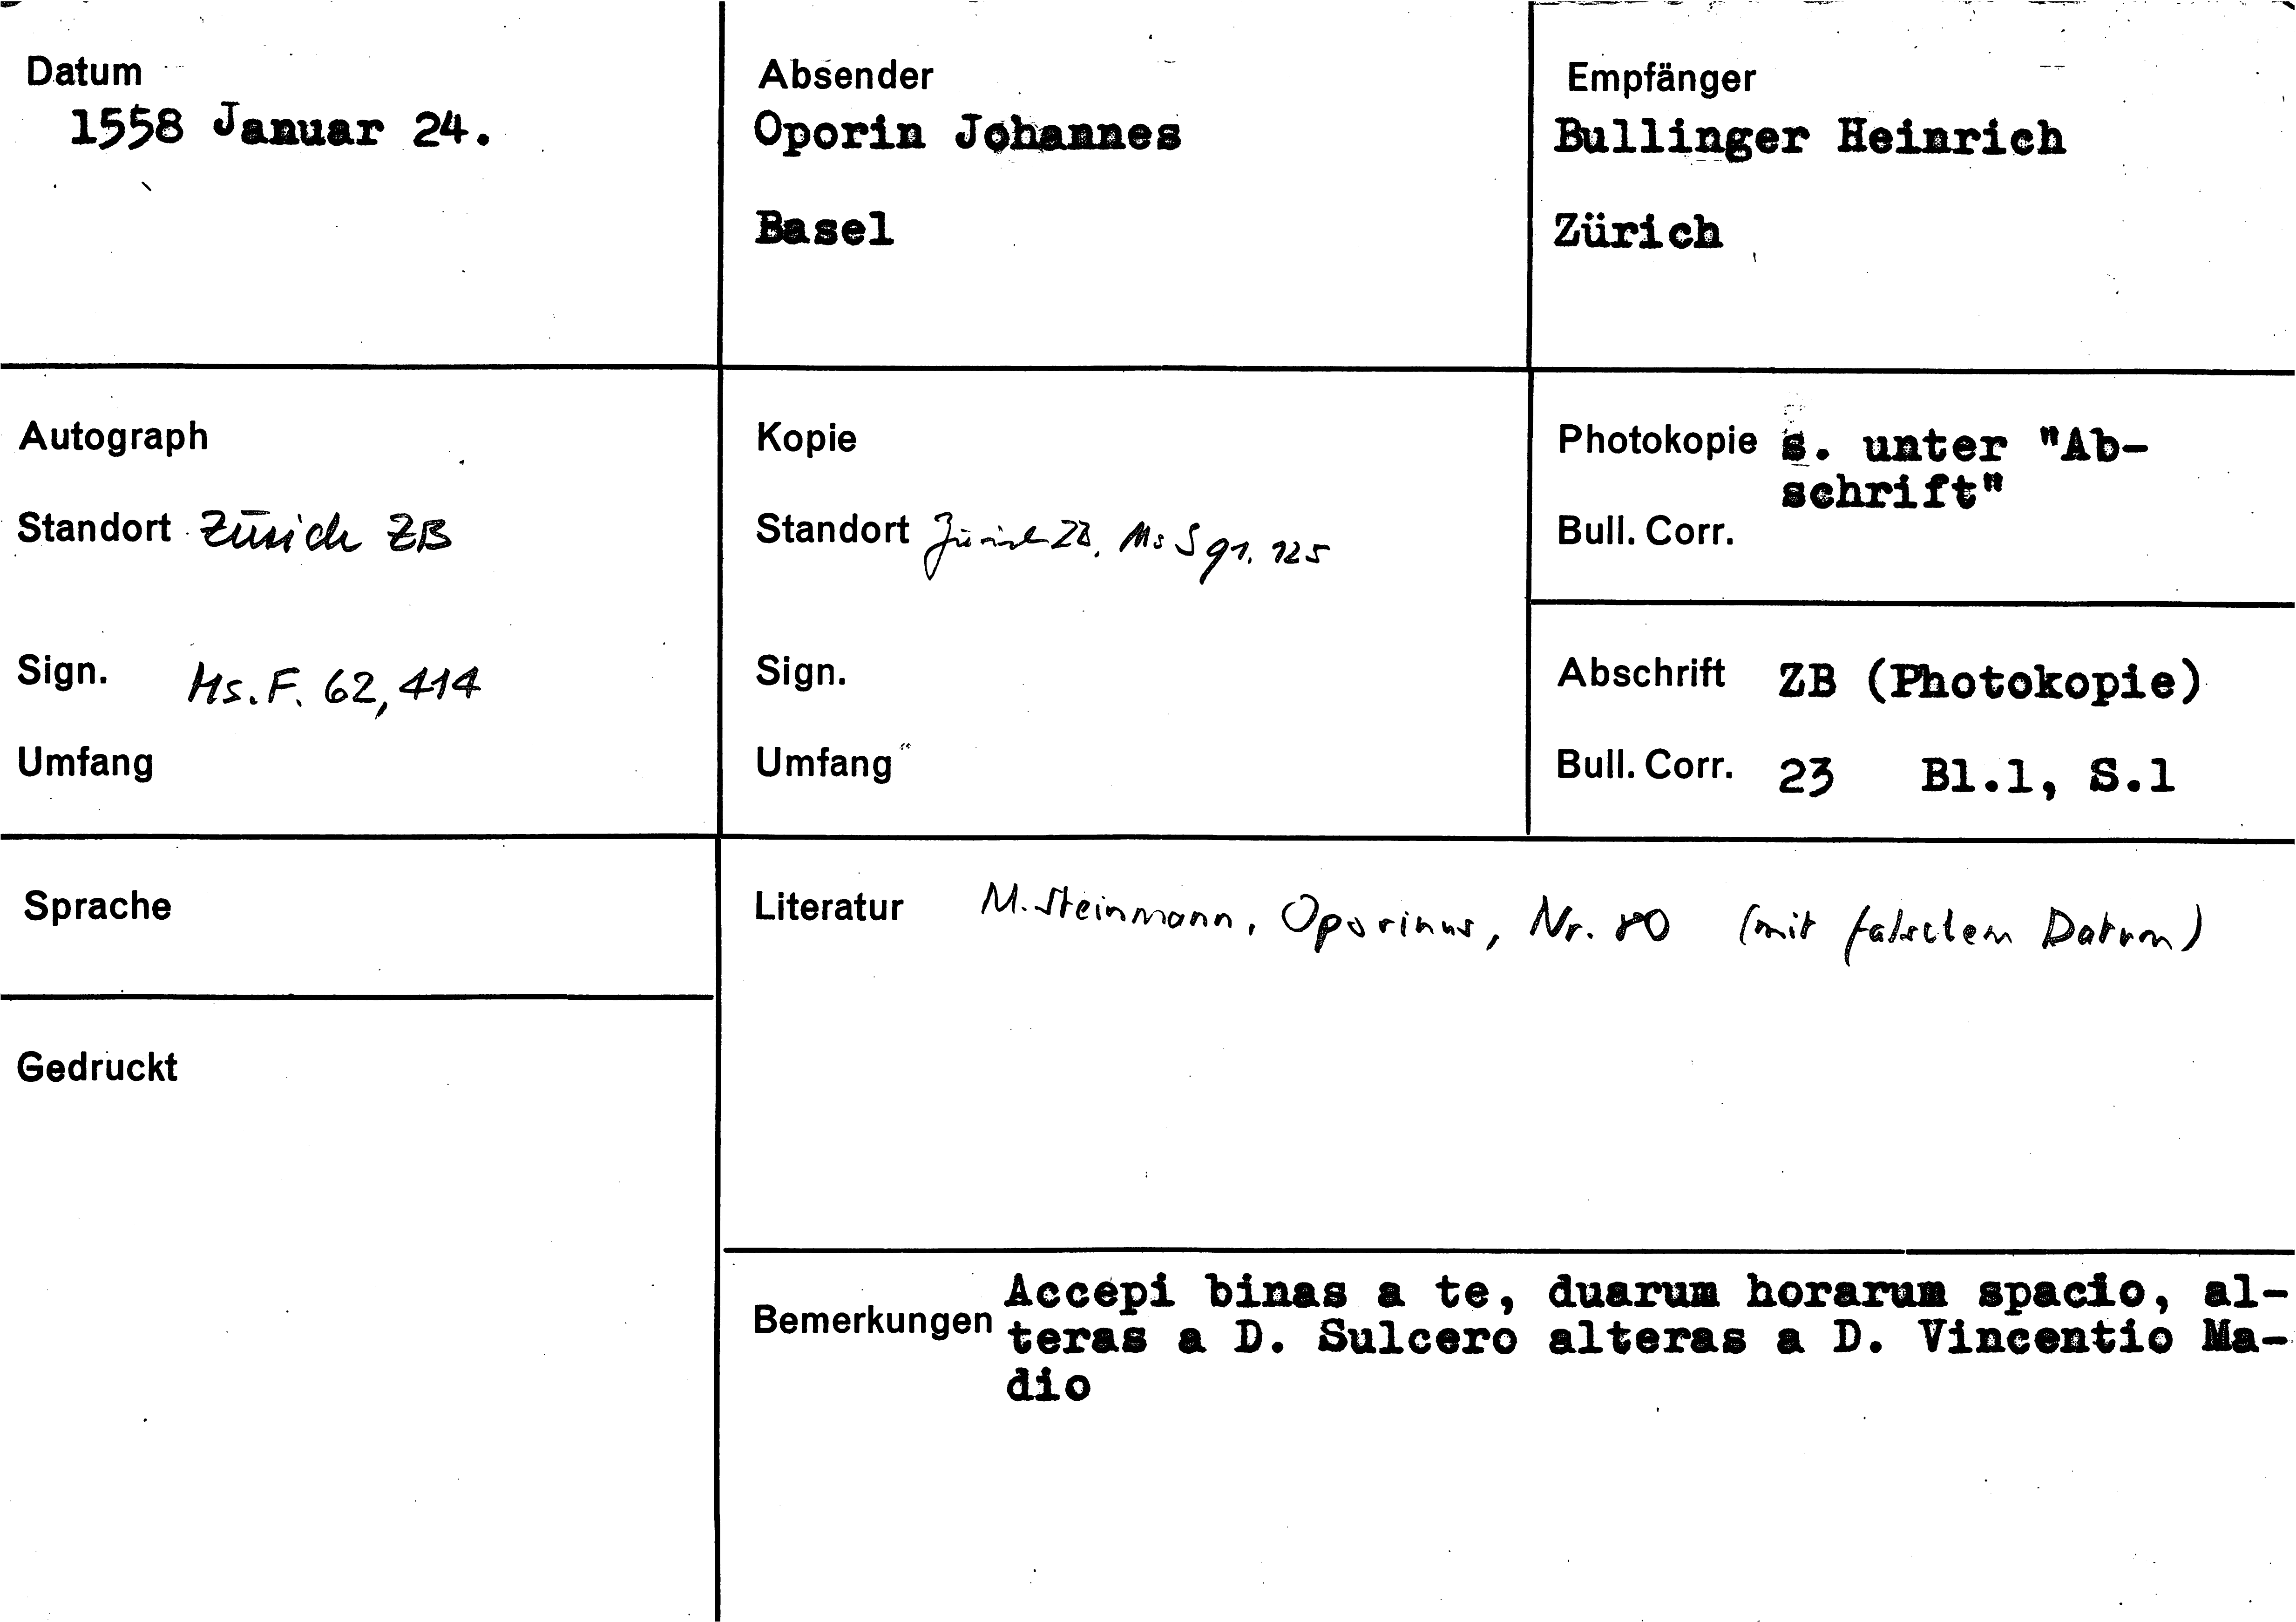 Datum
1558 Januar 24.
Absender
Oporin Johannes
Basel
Empfänger
Bullinger Heinrich
Zürich
Autograph
Standort Zürich ZB
Sign. Ms. F. 62, 414
Umfang
Kopie
Standort Zürich ZB, Ms S 91. 125
Sign.
Umfang
Photokopie s. unter "Ab-
schrift"
Bull. Corr.
Abschrift ZB (Photokopie)
Bull. Corr. 23 Bl.1, S.1
Sprache
Gedruckt
Literatur M. Steinmann, Oporinus, Nr. 80 (mit falschem Datum)
Bemerkungen Accepi binas a te, duarum horarum spacio, al-
teras a D. Sulcero alteras a D. Vincentio Ma-
dio